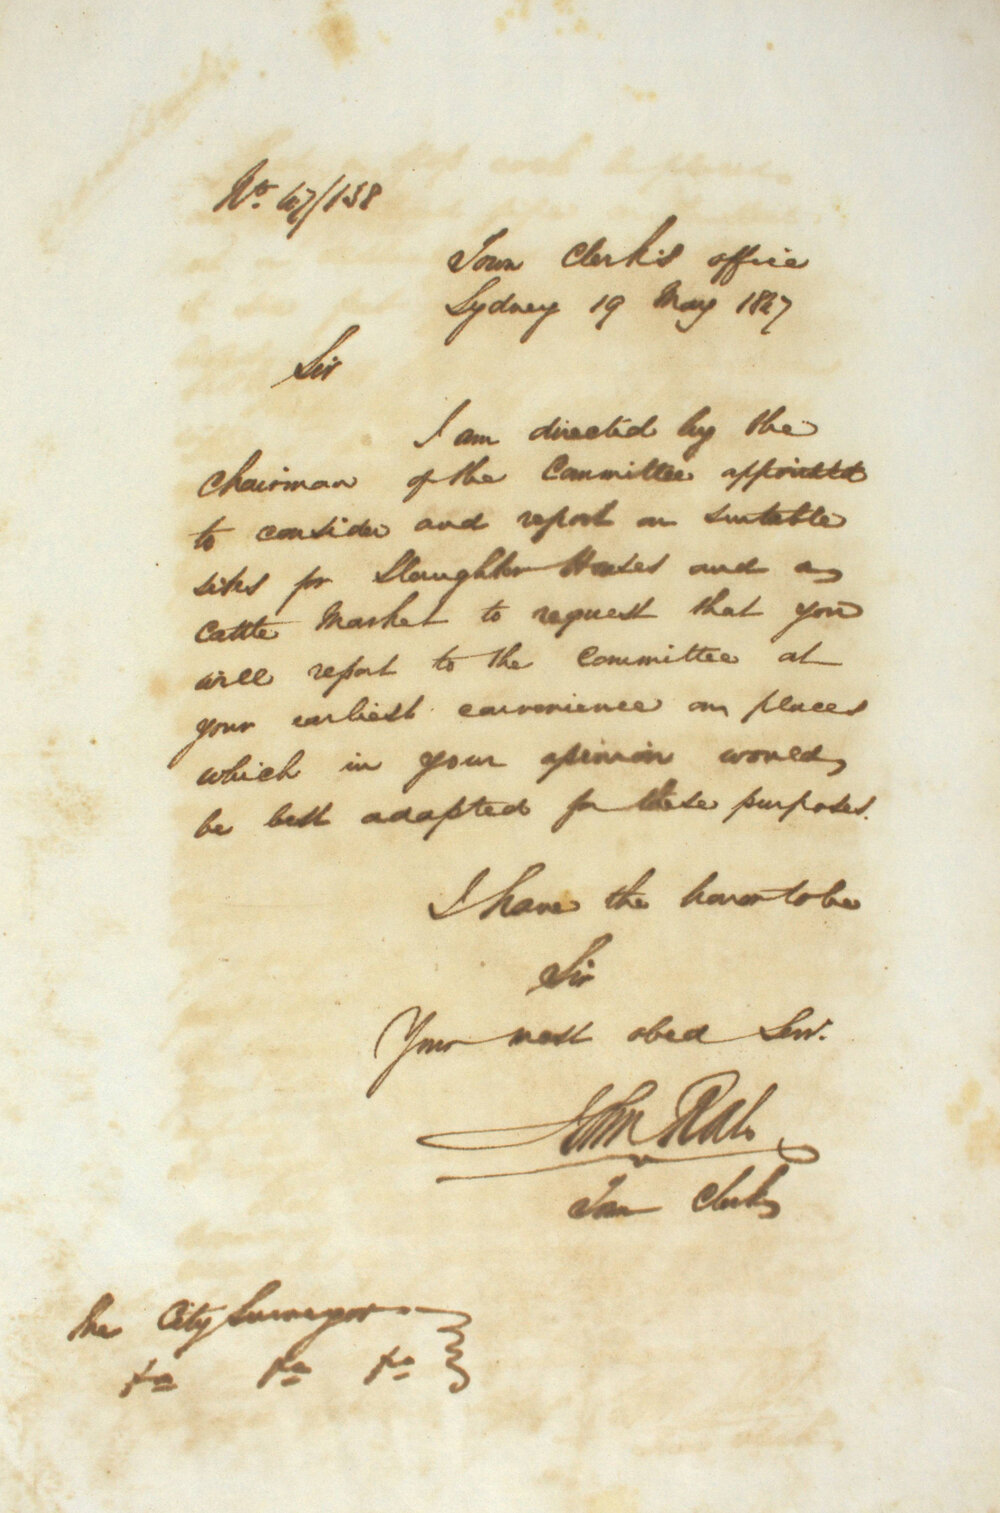 No. 47/138
Town Clerk's office
Sydney 19 May 1847
Sir
I am directed by the
Chairman of the Committee appointed
to consider and report on suitable
sites for Slaughter Houses and a
Cattle Market to request that you
will report to the Committee at
your earliest convenience on places
which in your opinion would
be best adapted for these purposes.
I have the honor to be
Sir
Your most obed Serv.
John Rae
Town Clerk
The City Surveyor
&c &c &c